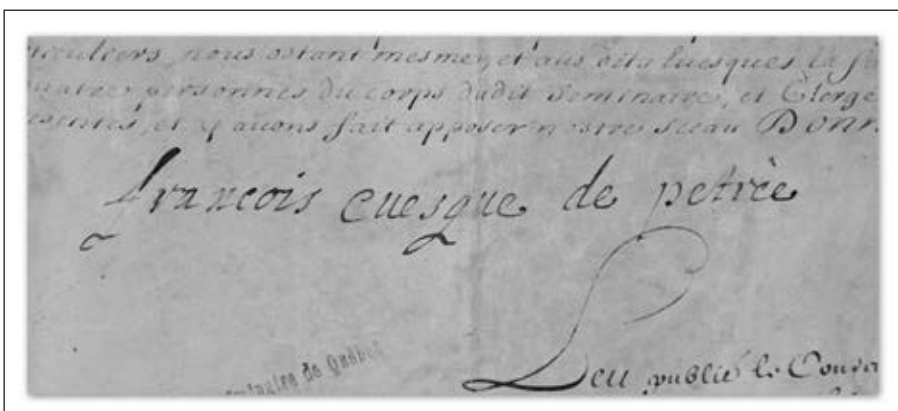 nous ostant mesmes et aus dits Euesques la
quatre personnes du corps dudit Seminaire, et Clergé
et y auons fait apposer nostre Sceau Donn
françois euesque de petrèe
Seminaire de Québec
Leu publié le Conse